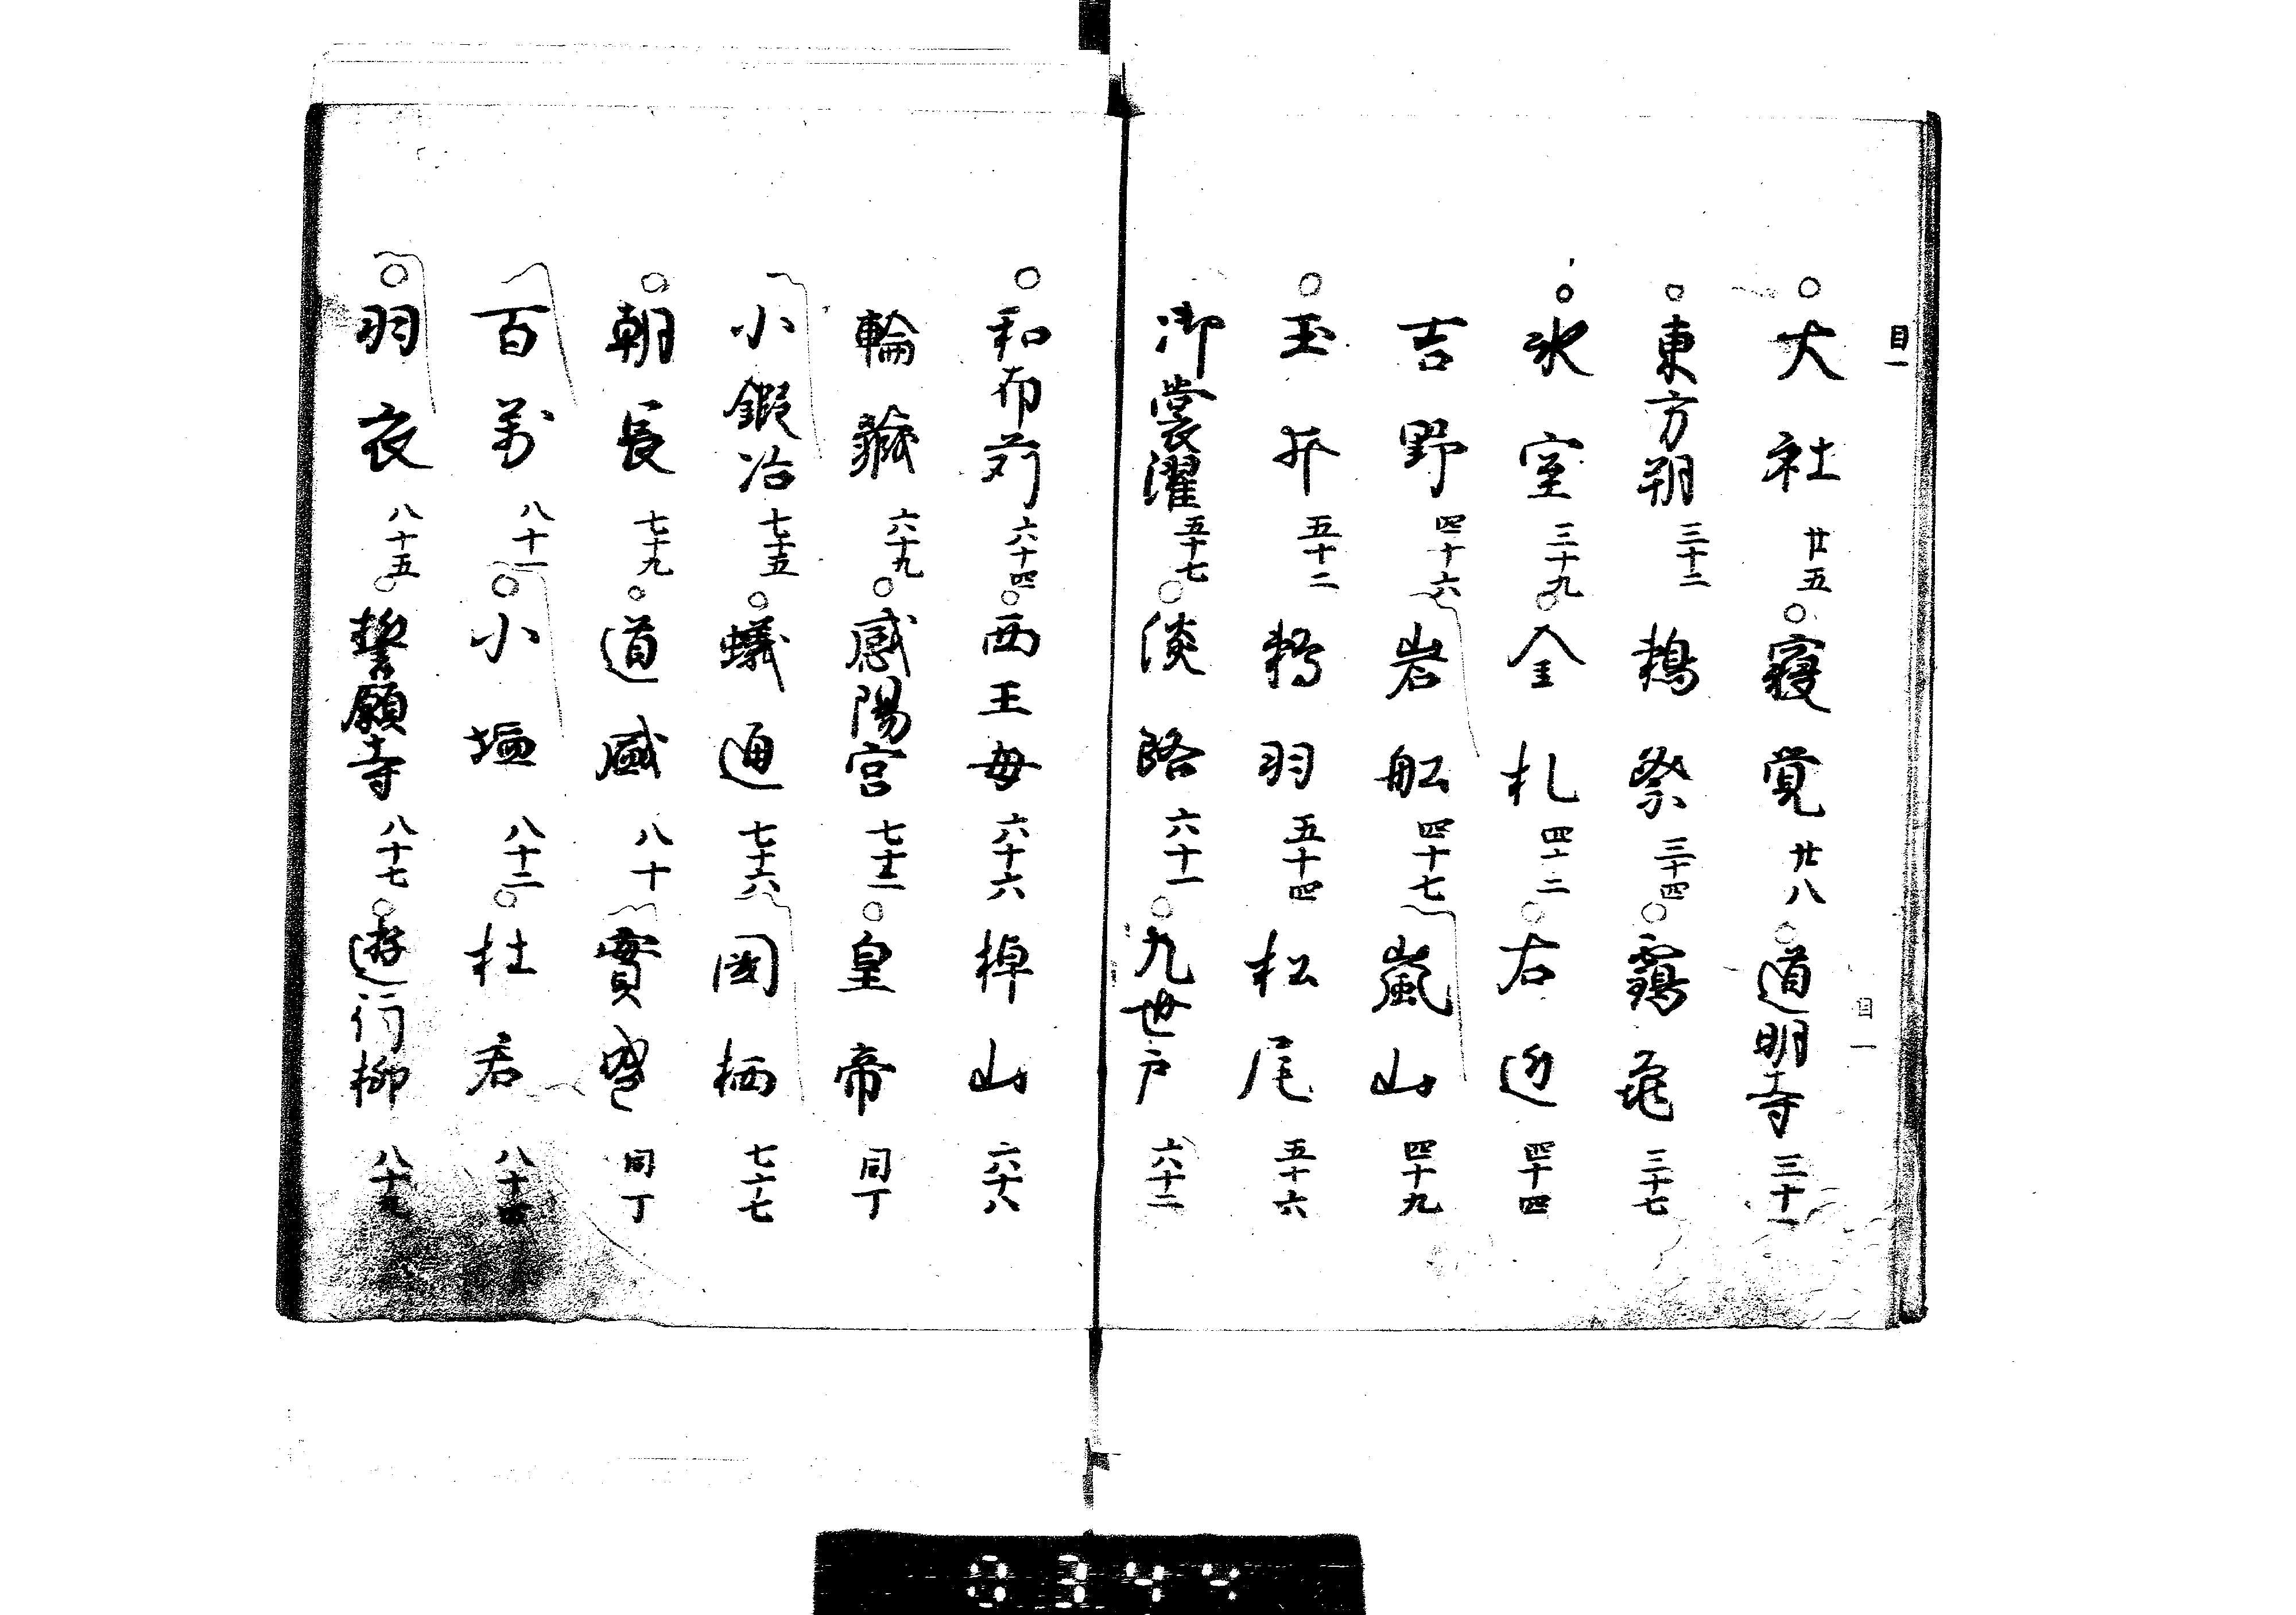 目一
○大社 廿五 ○寝覚 廿八 ○道明寺 三十一
○東方朔 三十二 鵜祭 三十四 ○靏亀 三十七
○氷室 三十九 ○金札 四十二 ○右近 四十四
吉野 四十六 岩舩 四十七 嵐山 四十九
○玉井 五十二 鵜羽 五十四 松尾 五十六
御裳濯 五十七 ○淡路 六十一 ○九世戸 六十二
○和布苅 六十四 ○西王母 六十六 棹山 六十八
輪蔵 六十九 ○感陽宮 七十二 ○皇帝 同丁
小鍛冶 七十五 ○蟻通 七十六 国栖 七十七
○朝長 七十九 ○道盛 八十 實盛 同丁
百萬 八十一 ○小塩 八十二 ○杜若 八十四
○羽衣 八十五 ○誓願寺 八十七 ○遊行柳 八十九
目一